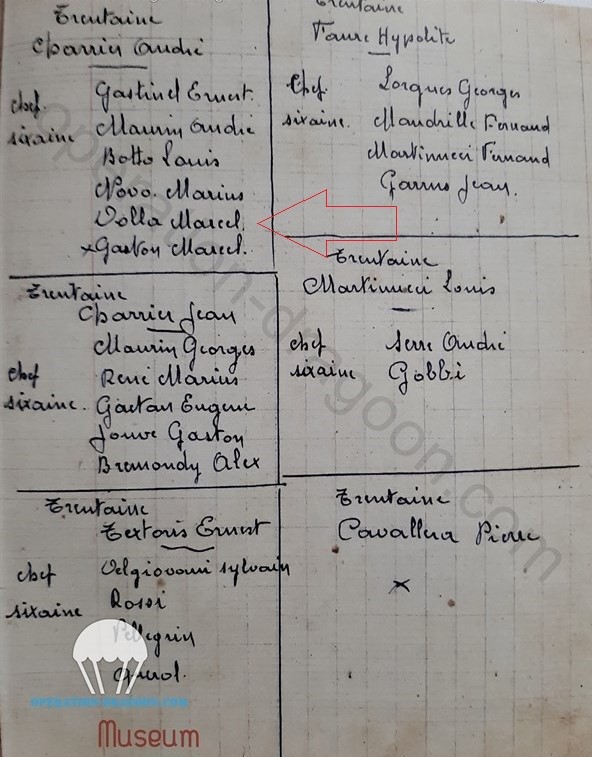 Trentaine
Charrier André
chef sixaine
Gastinel Ernest.
Maurin André
Botto Louis
Novo Marius
Volla Marcel.
x Gaston Marcel.
Trentaine
Charrier Jean
chef sixaine.
Maurin Georges
René Marius
Gaetan Eugene
Jouve Gaston
Bremondy Alex
Trentaine
Textoris Ernest
chef sixaine
Velgiovanni sylvain
Rossi
Pellegrin
Trentaine
Faure Hypolite
Chef. sixaine.
Lorques Georges
Mandrille Fernand
Martinucci Fernand
Garrus Jean.
Trentaine
Martinucci Louis
chef sixaine
Serre André
Gobbi
Trentaine
Cavallera Pierre
x
operation-dragoon.com
OPERATION-DRAGOON.COM
Museum